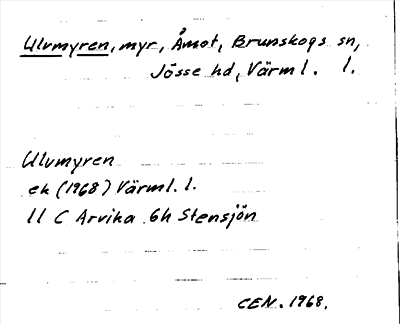 Ulvmyren, myr, Åmot, Brunskogs sn,
Jösse hd, Värml. l.
Ulvmyren
ek (1968) Värml. l.
11 C Arvika 6h Stensjön
CEN. 1968.